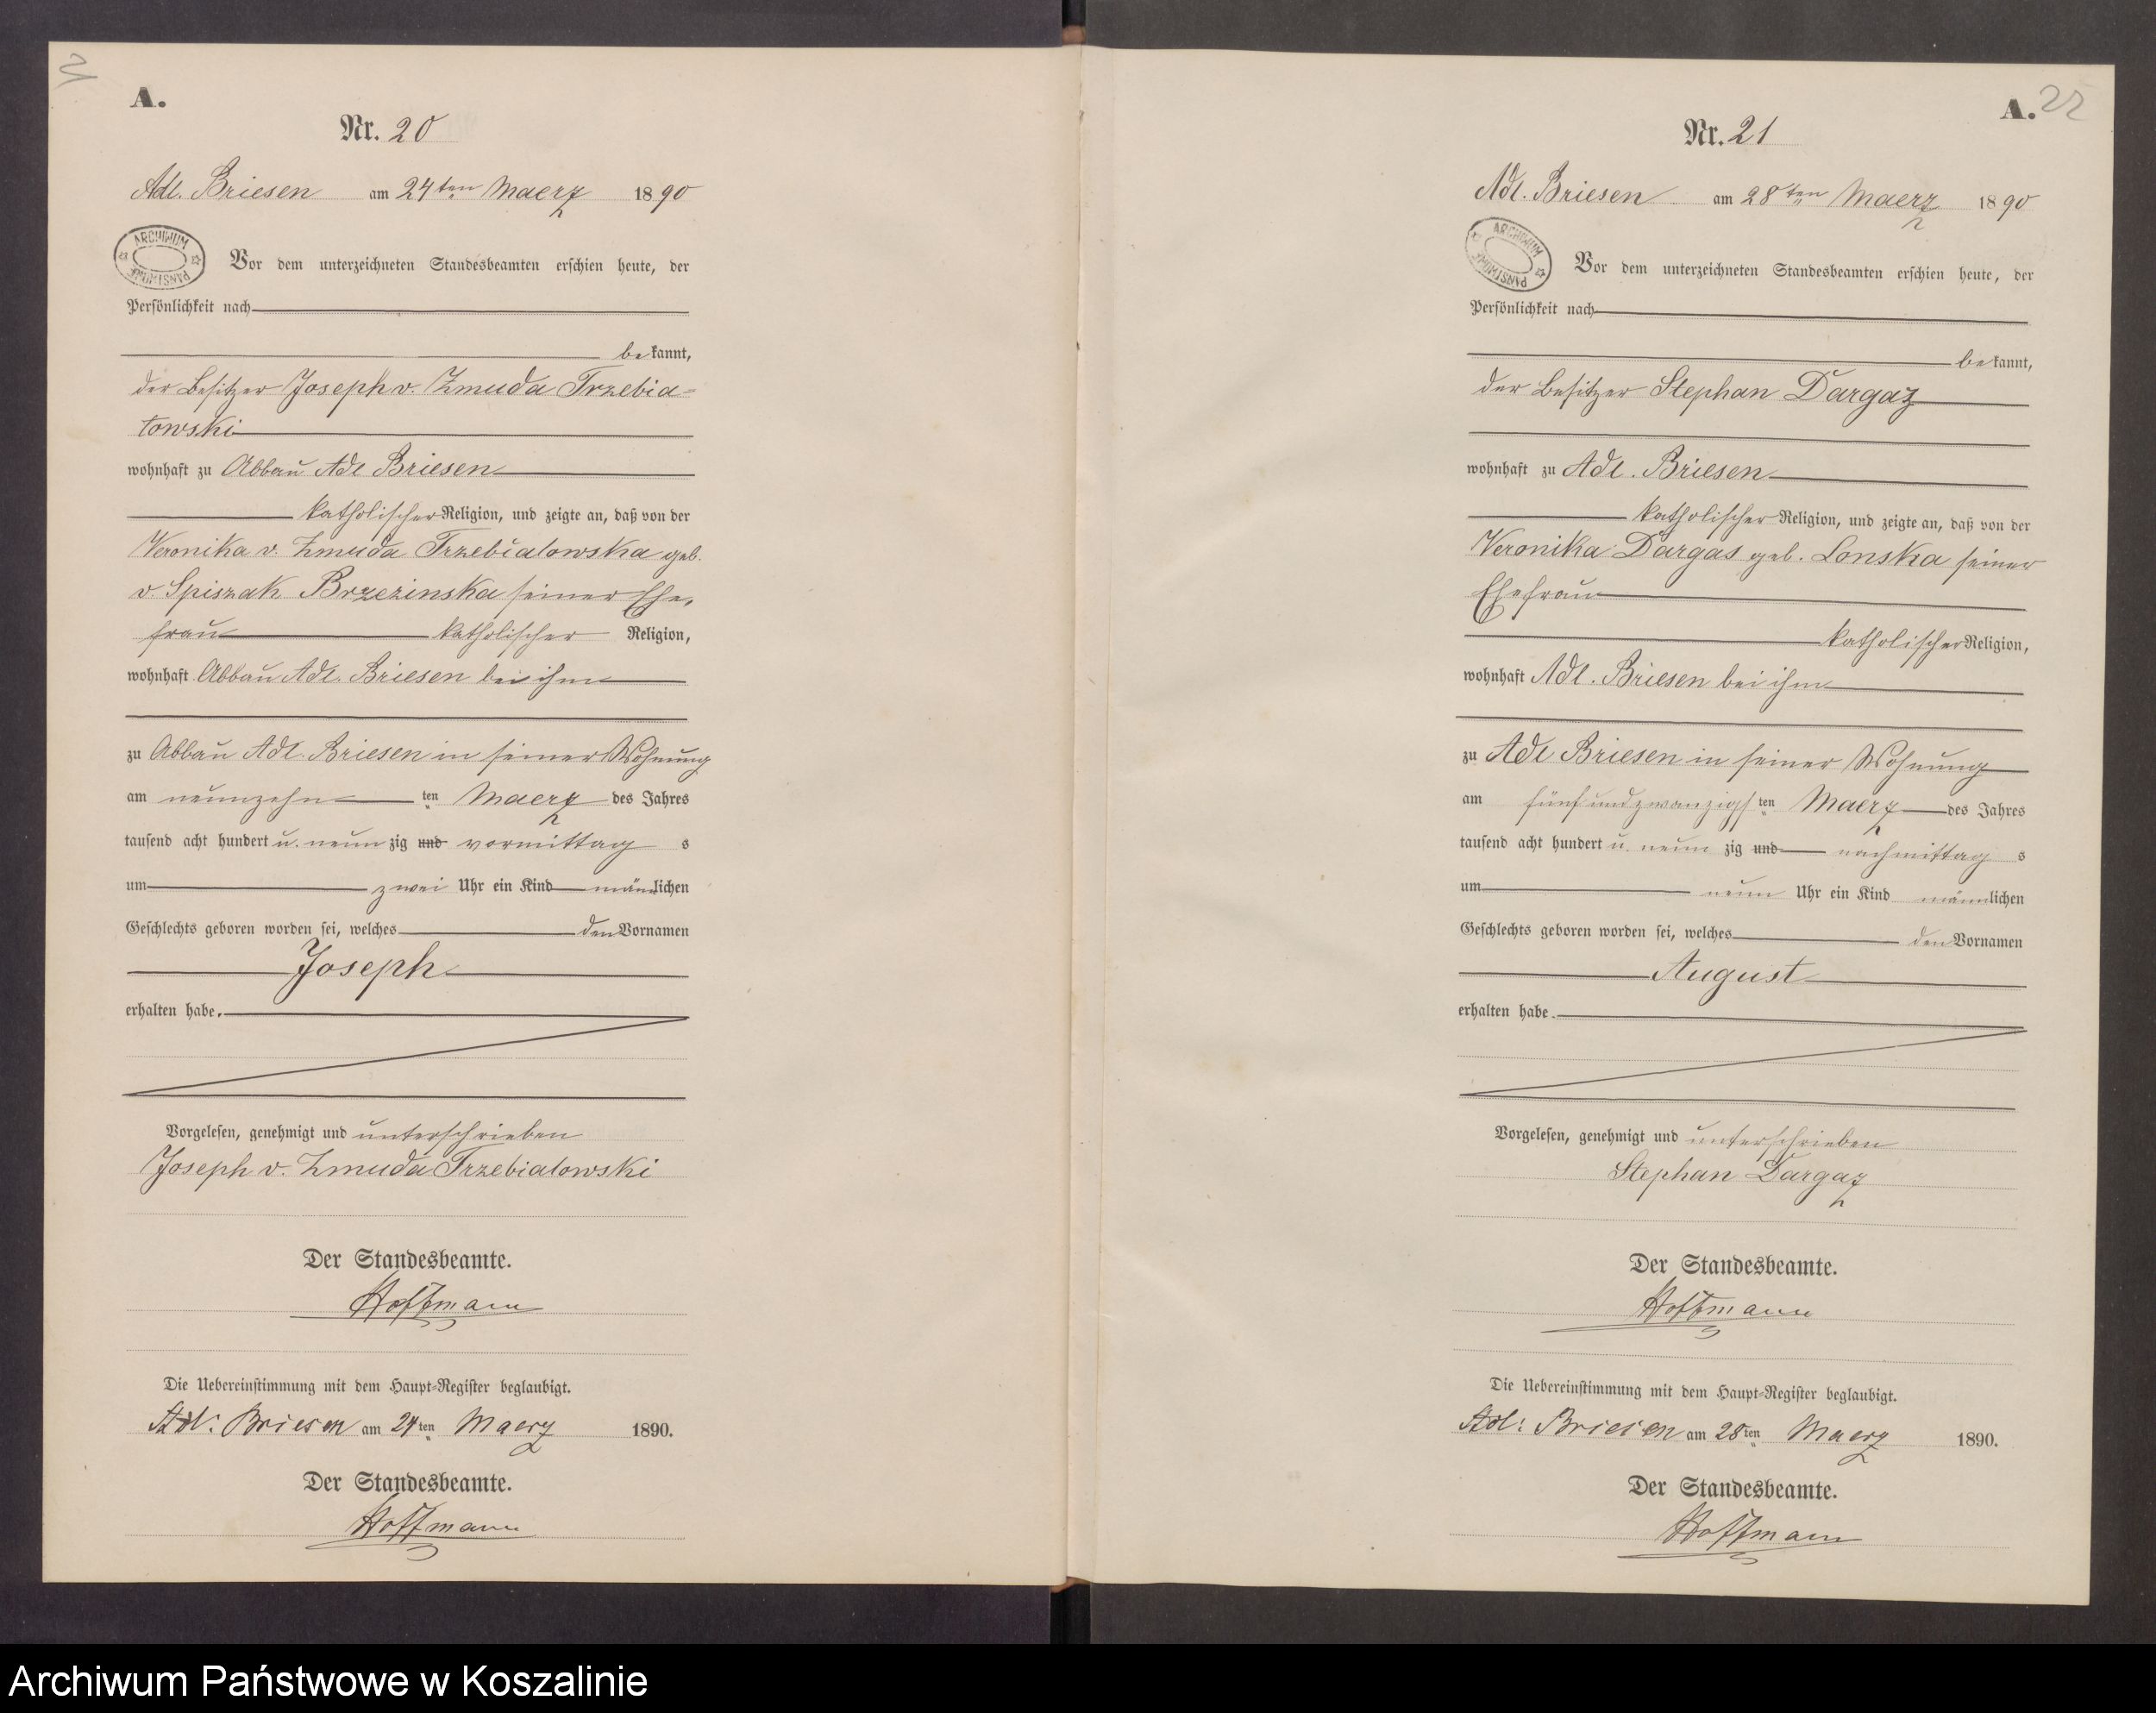 A.
Nr. 20
Adl. Briesen am 24ten Maerz 1890
ARCHIWUM PAŃSTWOWE
Vor dem unterzeichneten Standesbeamten erschien heute, der
Persönlichkeit nach
bekannt,
der Besitzer Joseph v. Zmuda Trzebia-
towski
wohnhaft zu Abbau Adl Briesen
katholischer Religion, und zeigte an, daß von der
Veronika v. Zmuda Trzebiatowska geb.
v Spiszak Brzezinska seiner Ehe,
frau katholischer Religion,
wohnhaft Abbau Adl. Briesen bei ihm
zu Abbau Adl. Briesen in seiner Wohnung
am neunzehnten Maerz des Jahres
tausend acht hundert u. neunzig und vormittags
um zwei Uhr ein Kind männlichen
Geschlechts geboren worden sei, welches den Vornamen
Joseph
erhalten habe.
Vorgelesen, genehmigt und unterschrieben
Joseph v. Zmuda Trzebiatowski
Der Standesbeamte.
Hoffmann
Die Uebereinstimmung mit dem Haupt-Register beglaubigt.
Adl: Briesen am 24ten Maerz 1890.
Der Standesbeamte.
Hoffmann
A. 22
Nr. 21
Adl. Briesen am 28ten Maerz 1890
ARCHIWUM PAŃSTWOWE
Vor dem unterzeichneten Standesbeamten erschien heute, der
Persönlichkeit nach
bekannt,
der Besitzer Stephan Dargaz
wohnhaft zu Adl. Briesen
katholischer Religion, und zeigte an, daß von der
Veronika Dargas geb. Lonska seiner
Ehefrau
katholischer Religion,
wohnhaft Adl. Briesen bei ihm
zu Adl Briesen in seiner Wohnung
am fünfundzwanzigsten Maerz des Jahres
tausend acht hundert u. neunzig und nachmittags
um neun Uhr ein Kind männlichen
Geschlechts geboren worden sei, welches den Vornamen
August
erhalten habe.
Vorgelesen, genehmigt und unterschrieben
Stephan Dargaz
Der Standesbeamte.
Hoffmann
Die Uebereinstimmung mit dem Haupt-Register beglaubigt.
Adl: Briesen am 28ten Maerz 1890.
Der Standesbeamte.
Hoffmann
Archiwum Państwowe w Koszalinie